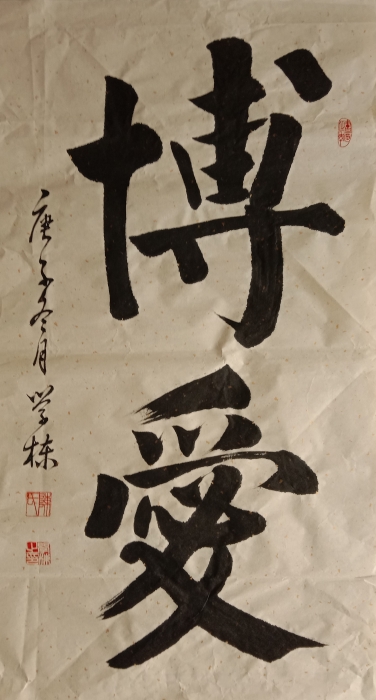 博愛
庚子冬月学栋